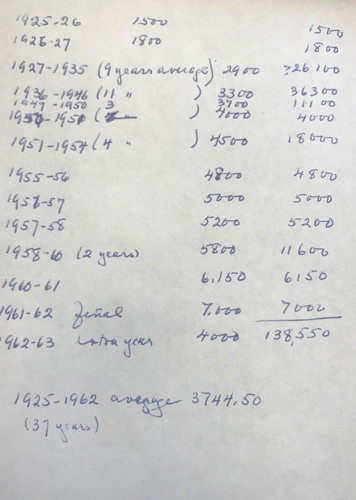 1925-26 1500 1500
1926-27 1800 1800
1927-1935 (9 years average) 2900 ?26100
1936-1946 (11 " ) 3300 36300
1947-1950 3 3700 11100
1950-1951 ( ) 4000 4000
1951-1954 (4 " ) 4500 18000
1955-56 4800 4800
1956-57 5000 5000
1957-58 5200 5200
1958-60 (2 years) 5800 11600
1960-61 6,150 6150
1961-62 final 7,000 7000
1962-63 extra year 4000 138,550
1925-1962 average 3744.50
(37 years)